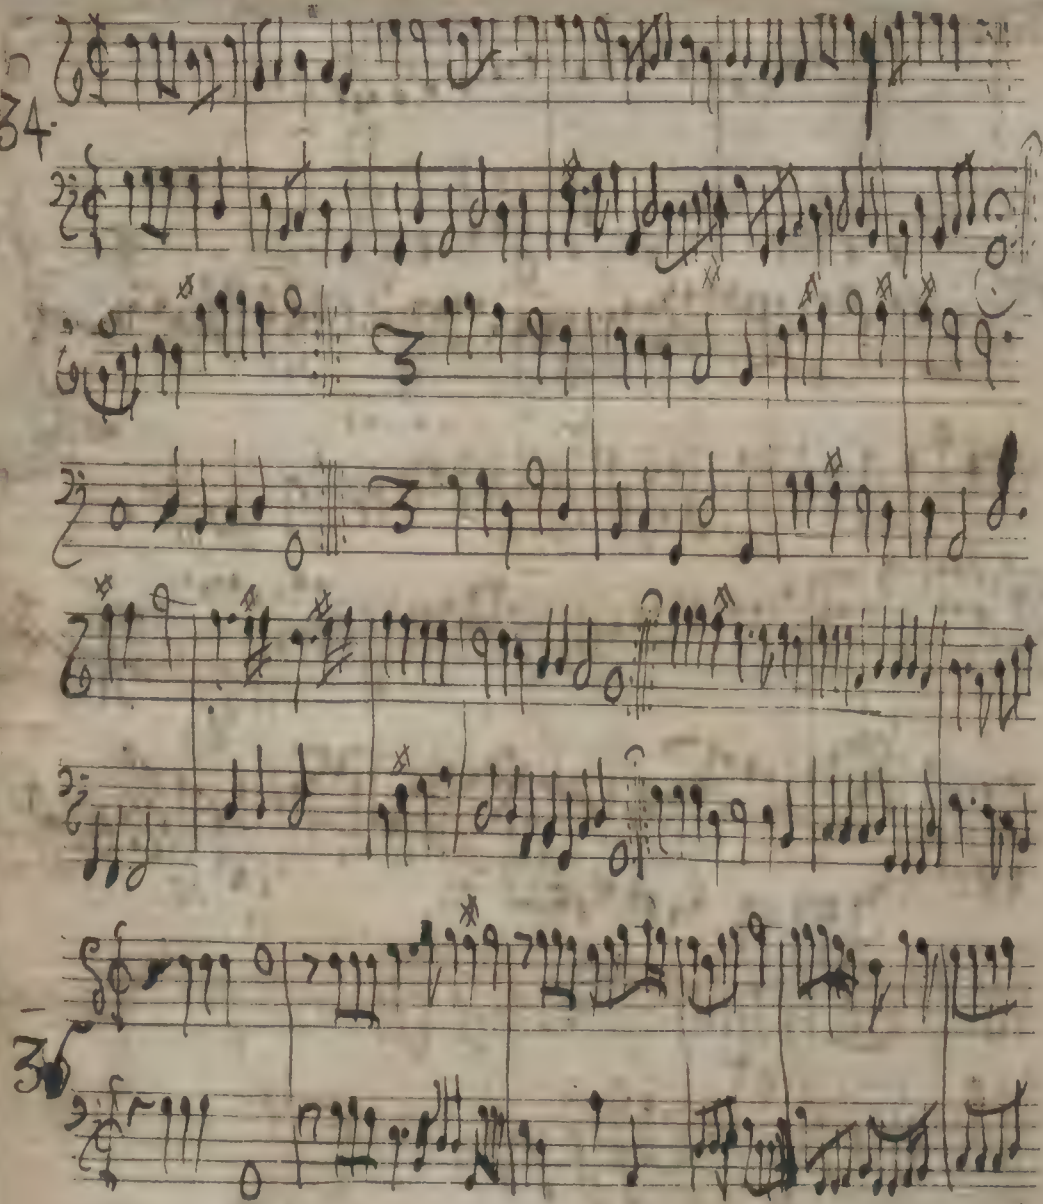 34.
3
3
3